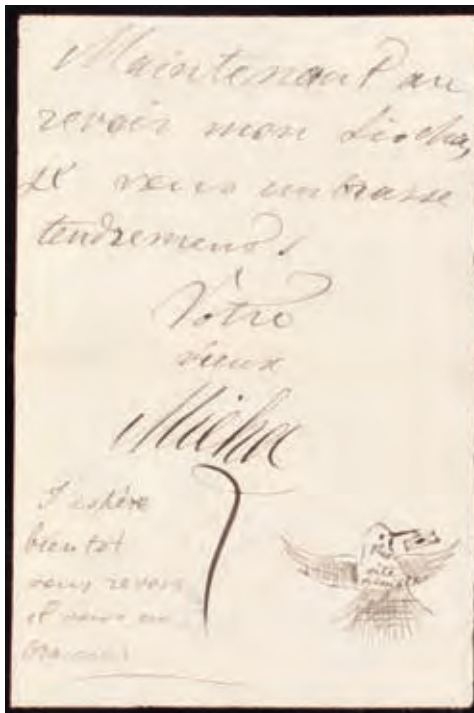 Maintenant au
revoir mon Liocha,
je vous embrasse
tendrement.
Votre
vieux
Micha
J'espère
bientot
vous revoir
et vous em
brasser